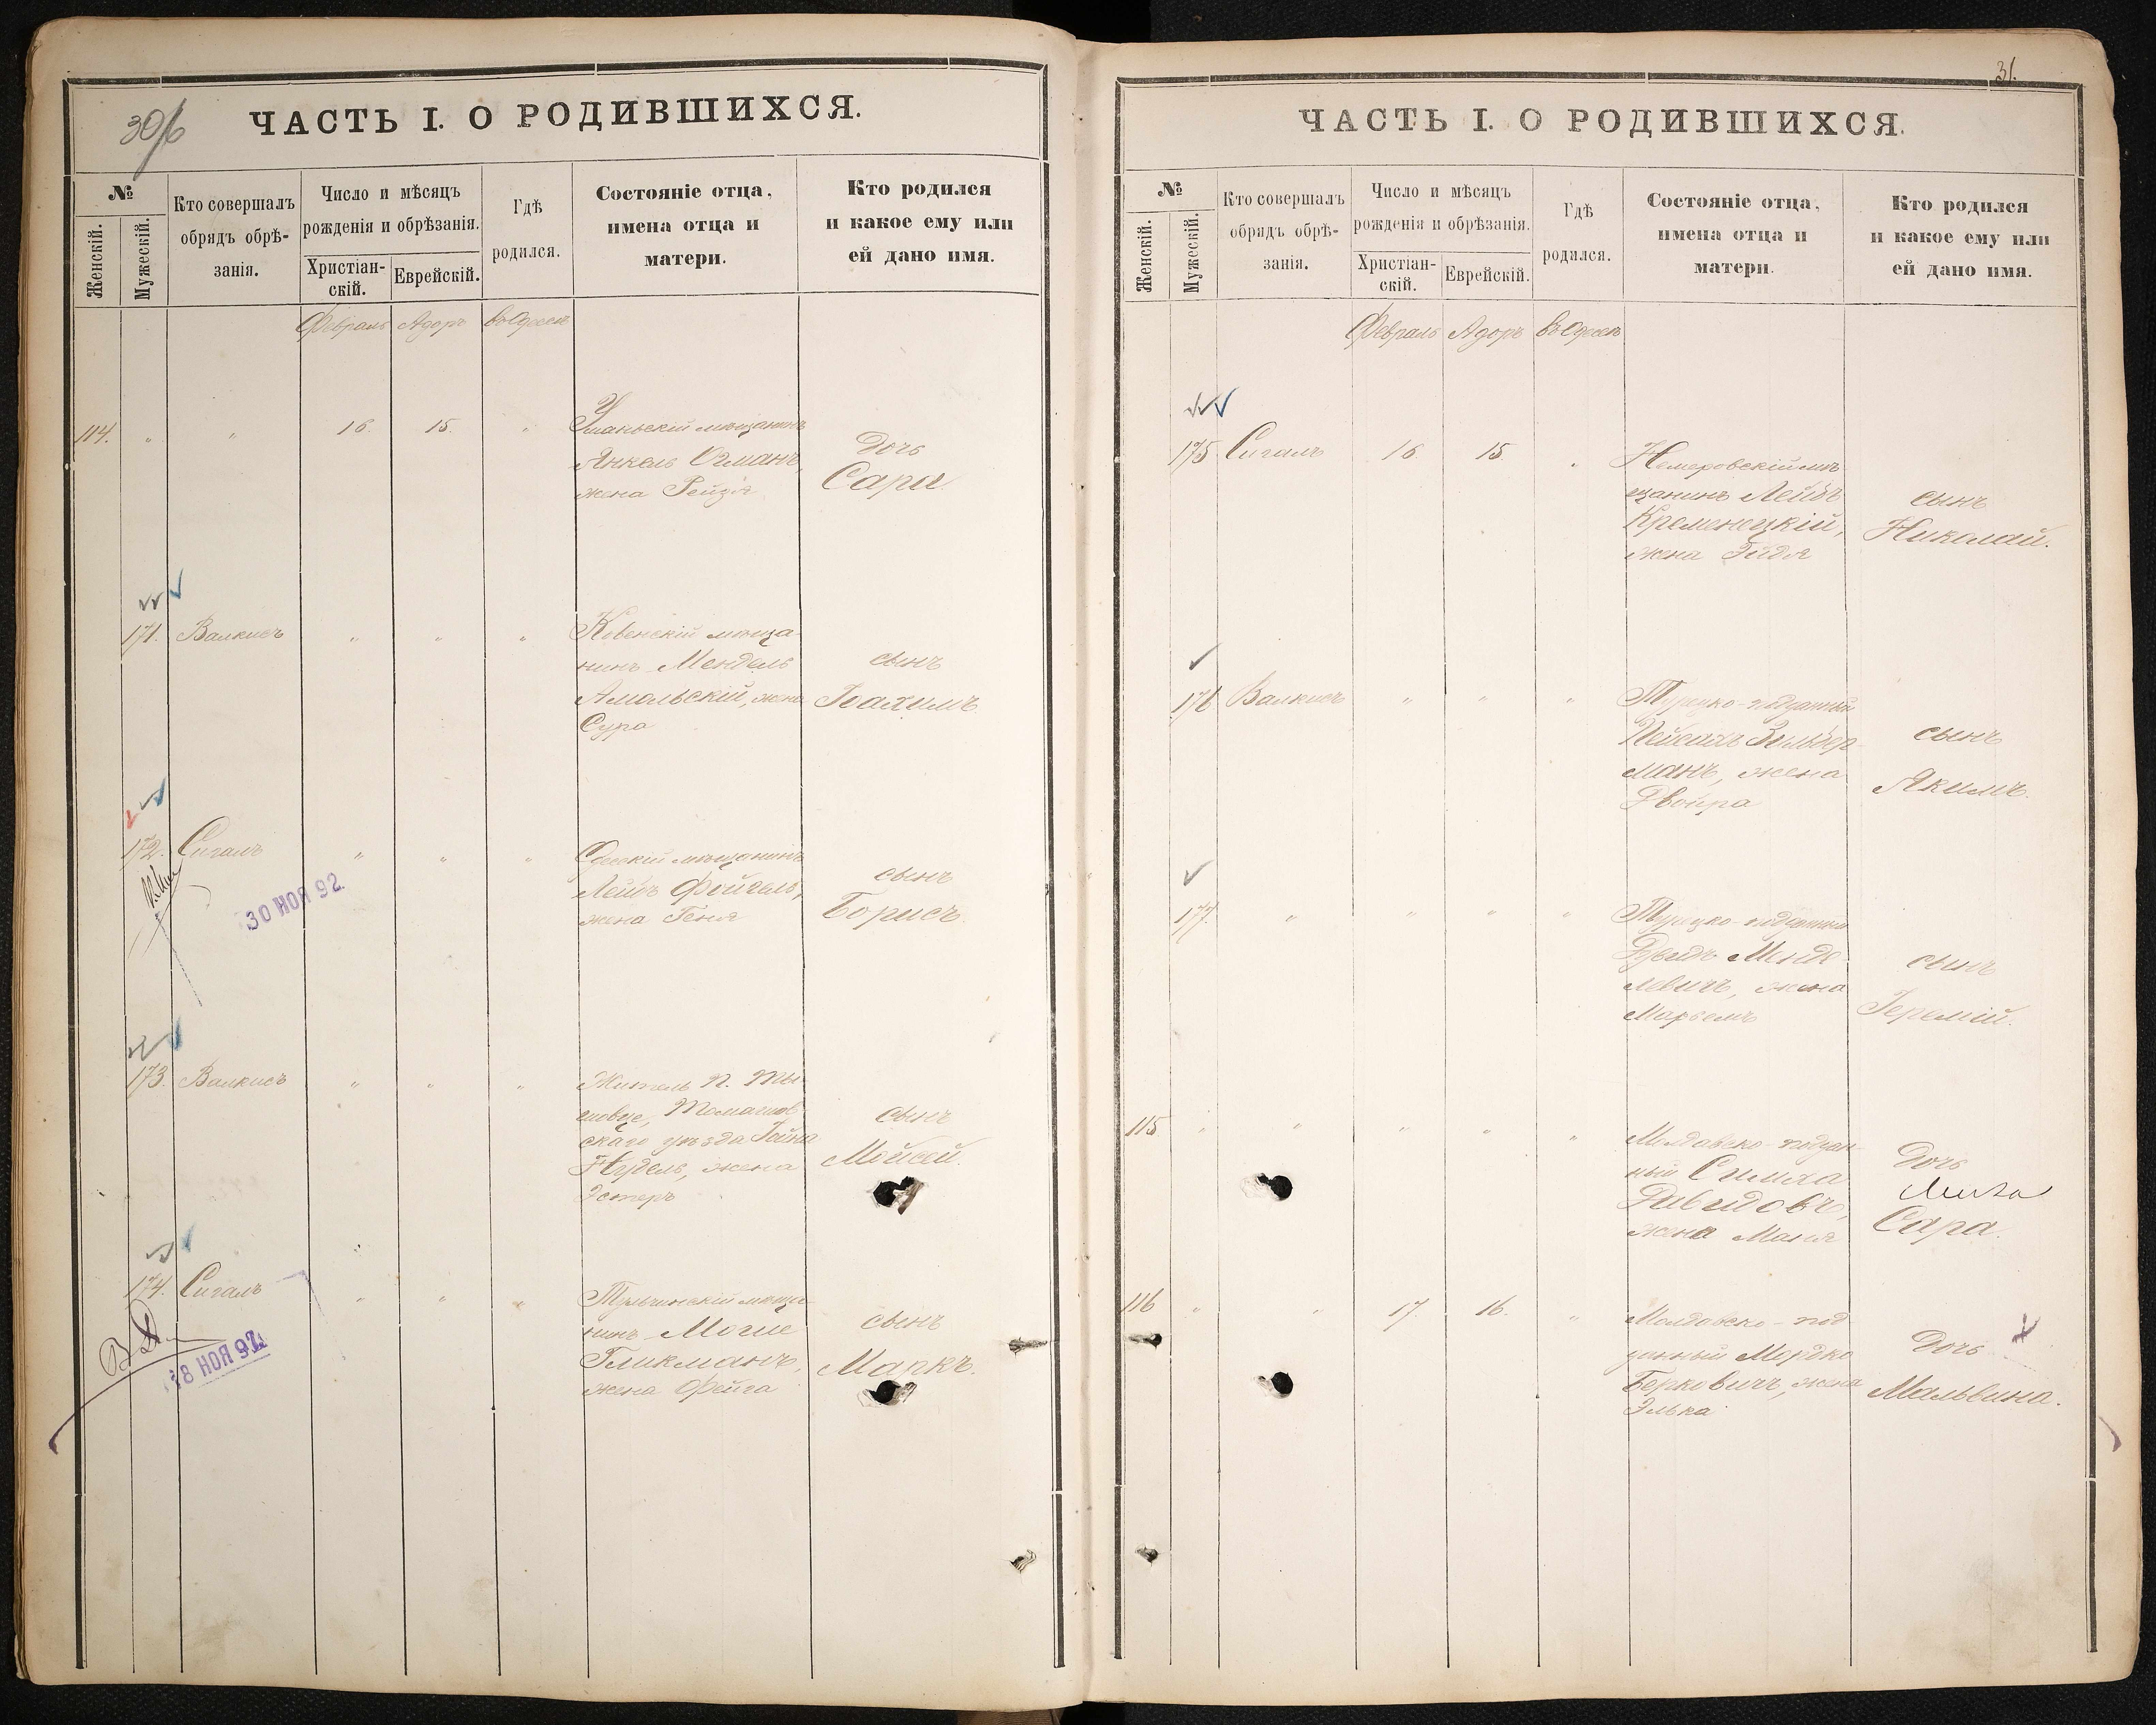 30/б
ЧАСТЬ I. О РОДИВШИХСЯ.
№
Женскій.
Мужескій.
Кто совершалъ
обрядъ обрѣ-
занія.
Число и мѣсяцъ
рожденія и обрѣзанія.
Христіан-
скій.
Еврейскій.
Гдѣ
родился.
Состояніе отца,
имена отца и
матери.
Кто родился
и какое ему или
ей дано имя.
Февраль Адоръ въ Одессѣ
114. " " 16. 15. "
Уманьскій мѣщанинъ
Янкель
жена Рейзя
Дочь
Сара
171. Валкисъ " " "
Ковенскій мѣща-
нинъ Мендель
Амольскій, жена
Сура
сынъ
Іоахимъ
172. Сигалъ " " "
30 НОЯ 92.
Одесскій мѣщанинъ
Лейбъ Фейгель,
жена Геня
сынъ
Борисъ.
173. Валкисъ " " "
Житель п. Ты-
шовце, Томашов-
скаго уѣзда
Нудель, жена
Эстеръ
сынъ
Мойсей.
174. Сигалъ " " "
18 НОЯ 92
Тульчинскій мѣща-
нинъ Мошe
Гликманъ,
жена Фейга
сынъ
Маркъ.
31.
ЧАСТЬ I. О РОДИВШИХСЯ.
№
Женскій.
Мужескій.
Кто совершалъ
обрядъ обрѣ-
занія.
Число и мѣсяцъ
рожденія и обрѣзанія.
Христіан-
скій.
Еврейскій.
Гдѣ
родился.
Состояніе отца,
имена отца и
матери.
Кто родился
и какое ему или
ей дано имя.
Февраль Адоръ въ Одессѣ
175 Сигалъ 16 15. "
Немеровскій мѣ-
щанинъ Лейбъ
Кременецкій,
жена
сынъ
Николай.
176 Валкисъ " " "
Турецко-подданный
Пейсахъ Зильбер-
манъ, жена
Двойра
сынъ
Якимъ.
177. " " " "
Турецко-подданный
Дувидъ Менде-
левичъ, жена
Марьемъ
сынъ
Іеремій.
115 " " " " "
Молдавско-поддан-
ный Симха
Давидовъ,
жена Маня
Дочь
Лиза
Сара.
116 " " 17. 16. "
Молдавско-под-
данный Мордко
Берковичъ, жена
Элька
Дочь
Мальвина.